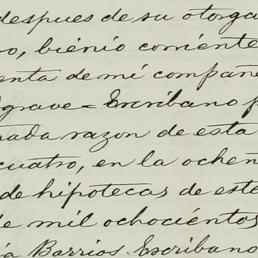 despues de su otorga
o, biénio corriente
enta de mi compañe
grave = Escribano p
nada razon de esta
cuatro, en la ochen
de hipotecas de este
de mil ochociéntos
ía Barrios. Escribano